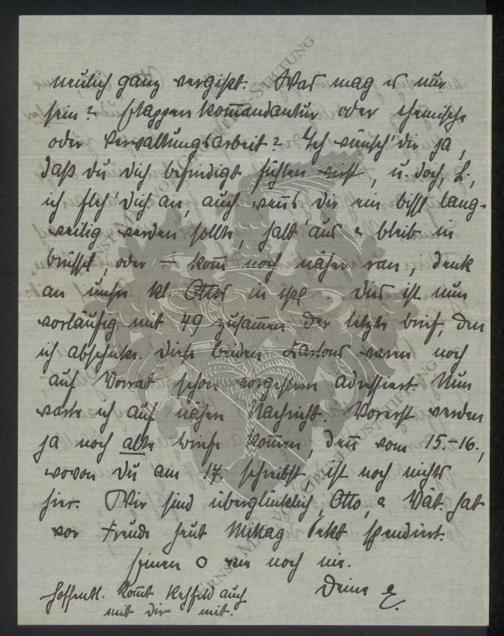 neulich ganz vergißt. Was mag es nur
sein? Etappenkommandantur oder chemische
oder Verwaltungsarbeit? Ich wünsch' dir ja,
daß du dich befriedigt fühlen wirst, u. doch, L.,
ich fleh' dich an, auch wenn's dir ein bissl lang-
weilig werden sollte, halt' aus & bleib in
brüssel, oder – komm noch näher ran, denk
an unsern kl. Otto in
vorläufig mit 49 zusammen der letzte brief, den
ich abschicke. Diese beiden Kartons waren noch
auf Vorrat schon vorgestern adressiert. Nun
warte ich auf nähere Nachricht. Vorerst werden
ja noch alte briefe kommen, denn vom 15.-16.,
wovon du am 17. schreibst, ist noch nichts
hier. Wir sind überglücklich, Otto & Vat. hat
vor Freude heut Mittag Sekt spendiert.
o wie noch nie.
Deine
Hoffentl. kommt auch
mit dir mit.